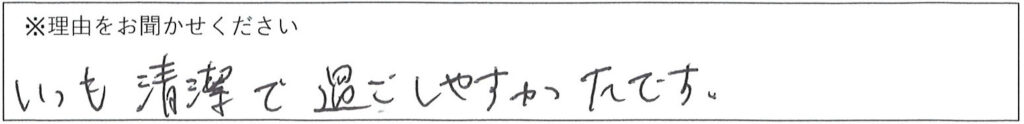 ※理由をお聞かせください
いつも清潔で過ごしやすかったです。